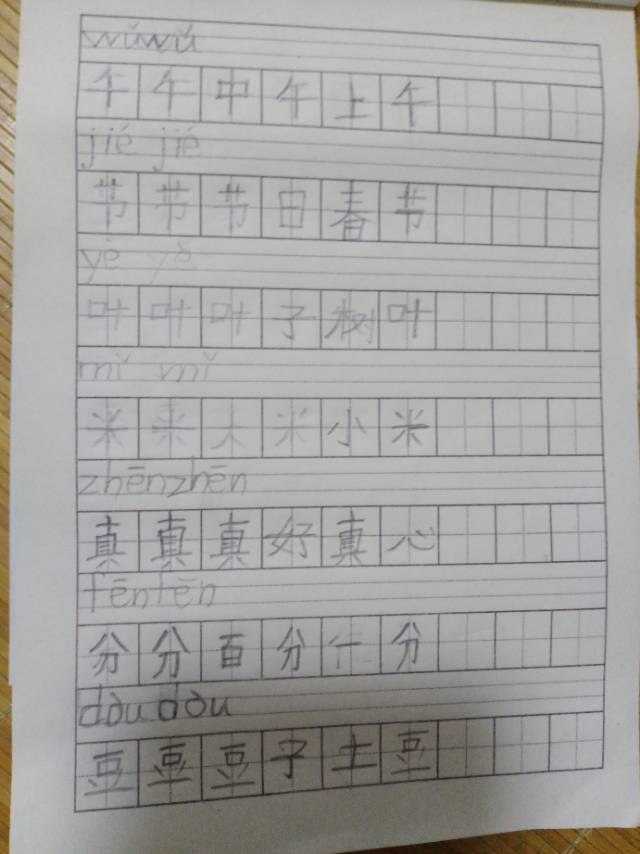 wǔwǔ
午午中午上午
jié jié
节节节日春节
yè yè
叶叶叶子树叶
mǐ mǐ
米米大米小米
zhēnzhēn
真真真好真心
fēnfēn
分分百分十分
dòudòu
豆豆豆子土豆